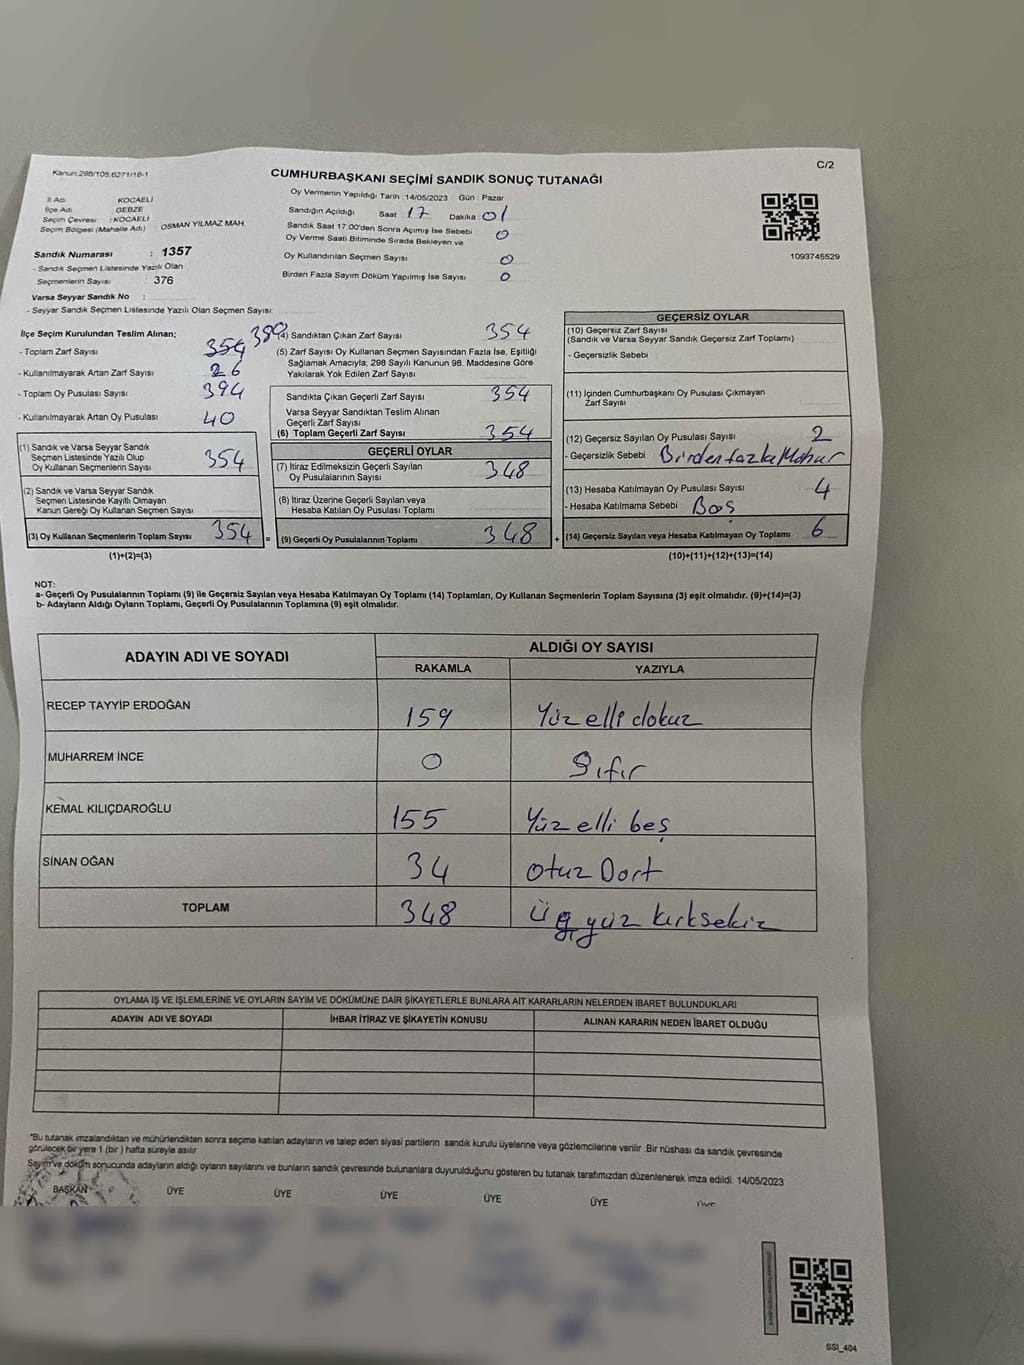 C/2
Kanun.298/105,6271/16-1
CUMHURBAŞKANI SEÇİMİ SANDIK SONUÇ TUTANAĞI
Oy Vermenin Yapıldığı Tarih :14/05/2023 Gün : Pazar
İl Adı : KOCAELİ
İlçe Adı : GEBZE
Seçim Çevresi : KOCAELİ
Seçim Bölgesi (Mahalle Adı) OSMAN YILMAZ MAH.
Sandığın Açıldığı Saat 17 Dakika : 01
Sandık Saat 17:00'den Sonra Açımış İse Sebebi 0
Oy Verme Saati Bitiminde Sırada Bekleyen ve
Oy Kullandırılan Seçmen Sayısı 0
Birden Fazla Sayım Döküm Yapılmış İse Sayısı 0
1093745529
Sandık Numarası : 1357
- Sandık Seçmen Listesinde Yazılı Olan
Seçmenlerin Sayısı : 376
Varsa Seyyar Sandık No :
- Seyyar Sandık Seçmen Listesinde Yazılı Olan Seçmen Sayısı:
İlçe Seçim Kurulundan Teslim Alınan;
- Toplam Zarf Sayısı 354 380
- Kullanılmayarak Artan Zarf Sayısı 26
- Toplam Oy Pusulası Sayısı 394
- Kullanılmayarak Artan Oy Pusulası 40
(1) Sandık ve Varsa Seyyar Sandık
Seçmen Listesinde Yazılı Olup
Oy Kullanan Seçmenlerin Sayısı 354
(2) Sandık ve Varsa Seyyar Sandık
Seçmen Listesinde Kayıtlı Olmayan
Kanun Gereği Oy Kullanan Seçmen Sayısı
(3) Oy Kullanan Seçmenlerin Toplam Sayısı 354 =
(1)+(2)=(3)
(4) Sandıktan Çıkan Zarf Sayısı 354
(5) Zarf Sayısı Oy Kullanan Seçmen Sayısından Fazla İse, Eşitliği
Sağlamak Amacıyla, 298 Sayılı Kanunun 98. Maddesine Göre
Yakılarak Yok Edilen Zarf Sayısı
Sandıkta Çıkan Geçerli Zarf Sayısı 354
Varsa Seyyar Sandıktan Teslim Alınan
Geçerli Zarf Sayısı
(6) Toplam Geçerli Zarf Sayısı 354
GEÇERLİ OYLAR
(7) İtiraz Edilmeksizin Geçerli Sayılan
Oy Pusulalarının Sayısı 348
(8) İtiraz Üzerine Geçerli Sayılan veya
Hesaba Katılan Oy Pusulası Toplamı
(9) Geçerli Oy Pusulalarının Toplamı 348 +
GEÇERSİZ OYLAR
(10) Geçersiz Zarf Sayısı
(Sandık ve Varsa Seyyar Sandık Geçersiz Zarf Toplamı)
- Geçersizlik Sebebi
(11) İçinden Cumhurbaşkanı Oy Pusulası Çıkmayan
Zarf Sayısı
(12) Geçersiz Sayılan Oy Pusulası Sayısı 2
- Geçersizlik Sebebi Birden fazla Mühür
(13) Hesaba Katılmayan Oy Pusulası Sayısı 4
- Hesaba Katılmama Sebebi : Boş
(14) Geçersiz Sayılan veya Hesaba Katılmayan Oy Toplamı 6
(10)+(11)+(12)+(13)=(14)
NOT:
a- Geçerli Oy Pusulalarının Toplamı (9) ile Geçersiz Sayılan veya Hesaba Katılmayan Oy Toplamı (14) Toplamları, Oy Kullanan Seçmenlerin Toplam Sayısına (3) eşit olmalıdır. (9)+(14)=(3)
b- Adayların Aldığı Oyların Toplamı, Geçerli Oy Pusulalarının Toplamına (9) eşit olmalıdır.
ADAYIN ADI VE SOYADI ALDIĞI OY SAYISI
RAKAMLA YAZIYLA
RECEP TAYYİP ERDOĞAN 159 Yüz elli dokuz
MUHARREM İNCE 0 Sıfır
KEMAL KILIÇDAROĞLU 155 Yüz elli beş
SİNAN OĞAN 34 otuz Dört
TOPLAM 348 Üç yüz kırksekiz
OYLAMA İŞ VE İŞLEMLERİNE VE OYLARIN SAYIM VE DÖKÜMÜNE DAİR ŞİKAYETLERLE BUNLARA AİT KARARLARIN NELERDEN İBARET BULUNDUKLARI
ADAYIN ADI VE SOYADI İHBAR İTİRAZ VE ŞİKAYETİN KONUSU ALINAN KARARIN NEDEN İBARET OLDUĞU
*Bu tutanak imzalandıktan ve mühürlendikten sonra seçime katılan adayların ve talep eden siyasi partilerin sandık kurulu üyelerine veya gözlemcilerine verilir .Bir nüshası da sandık çevresinde
görülecek bir yere 1 (bir ) hafta süreyle asılır
Sayım ve döküm sonucunda adayların aldığı oyların sayılarını ve bunların sandık çevresinde bulunanlara duyurulduğunu gösteren bu tutanak tarafımızdan düzenlenerek imza edildi. 14/05/2023
BAŞKAN ÜYE ÜYE ÜYE ÜYE ÜYE ÜYE
SSI_404